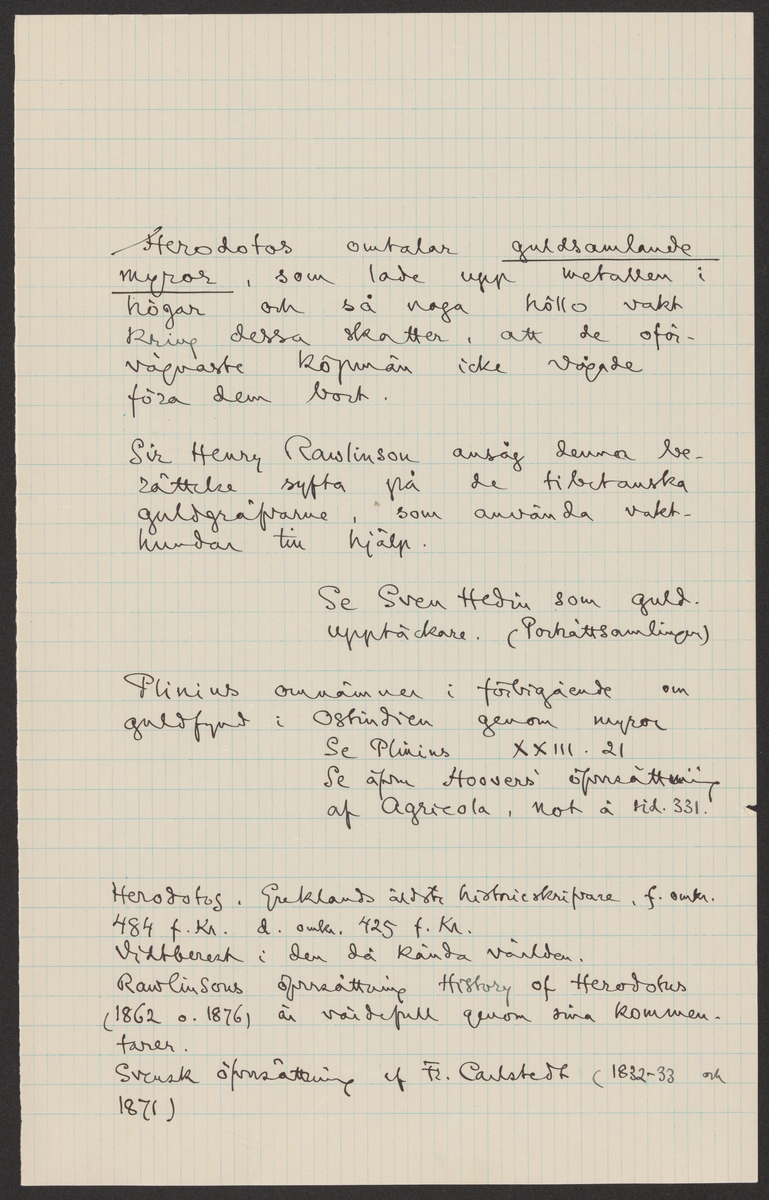 Herodotos omtalar guldsamlande
myror, som lade upp metallen i
högar och så noga höllo vakt
kring dessa skatter, att de oför-
vägnaste köpmän icke vågade
föra dem bort.
Sir Henry Rawlinson ansåg denna be-
rättelse syfta på de tibetanska
guldgräfvarne, som använda vakt-
hundar till hjälp.
Se Sven Hedin som guld-
upptäckare. (Porträttsamlingen)
Plinius omnämner i förbigående om
guldfynd i Ostindien genom myror
Se Plinius XXIII. 21
Se äfven Hoovers' öfversättning
af Agricola, not å sid. 331.
Herodotos, Greklands äldste historieskrifvare, f. omkr.
484 f. Kr. d. omkr. 425 f. Kr.
Vidtberest i den då kända världen.
Rawlinsons öfversättning History of Herodotus
(1862 o. 1876) är värdefull genom sina kommen-
tarer.
Svensk öfversättning af Fr. Carlstedt (1832-33 och
1871)